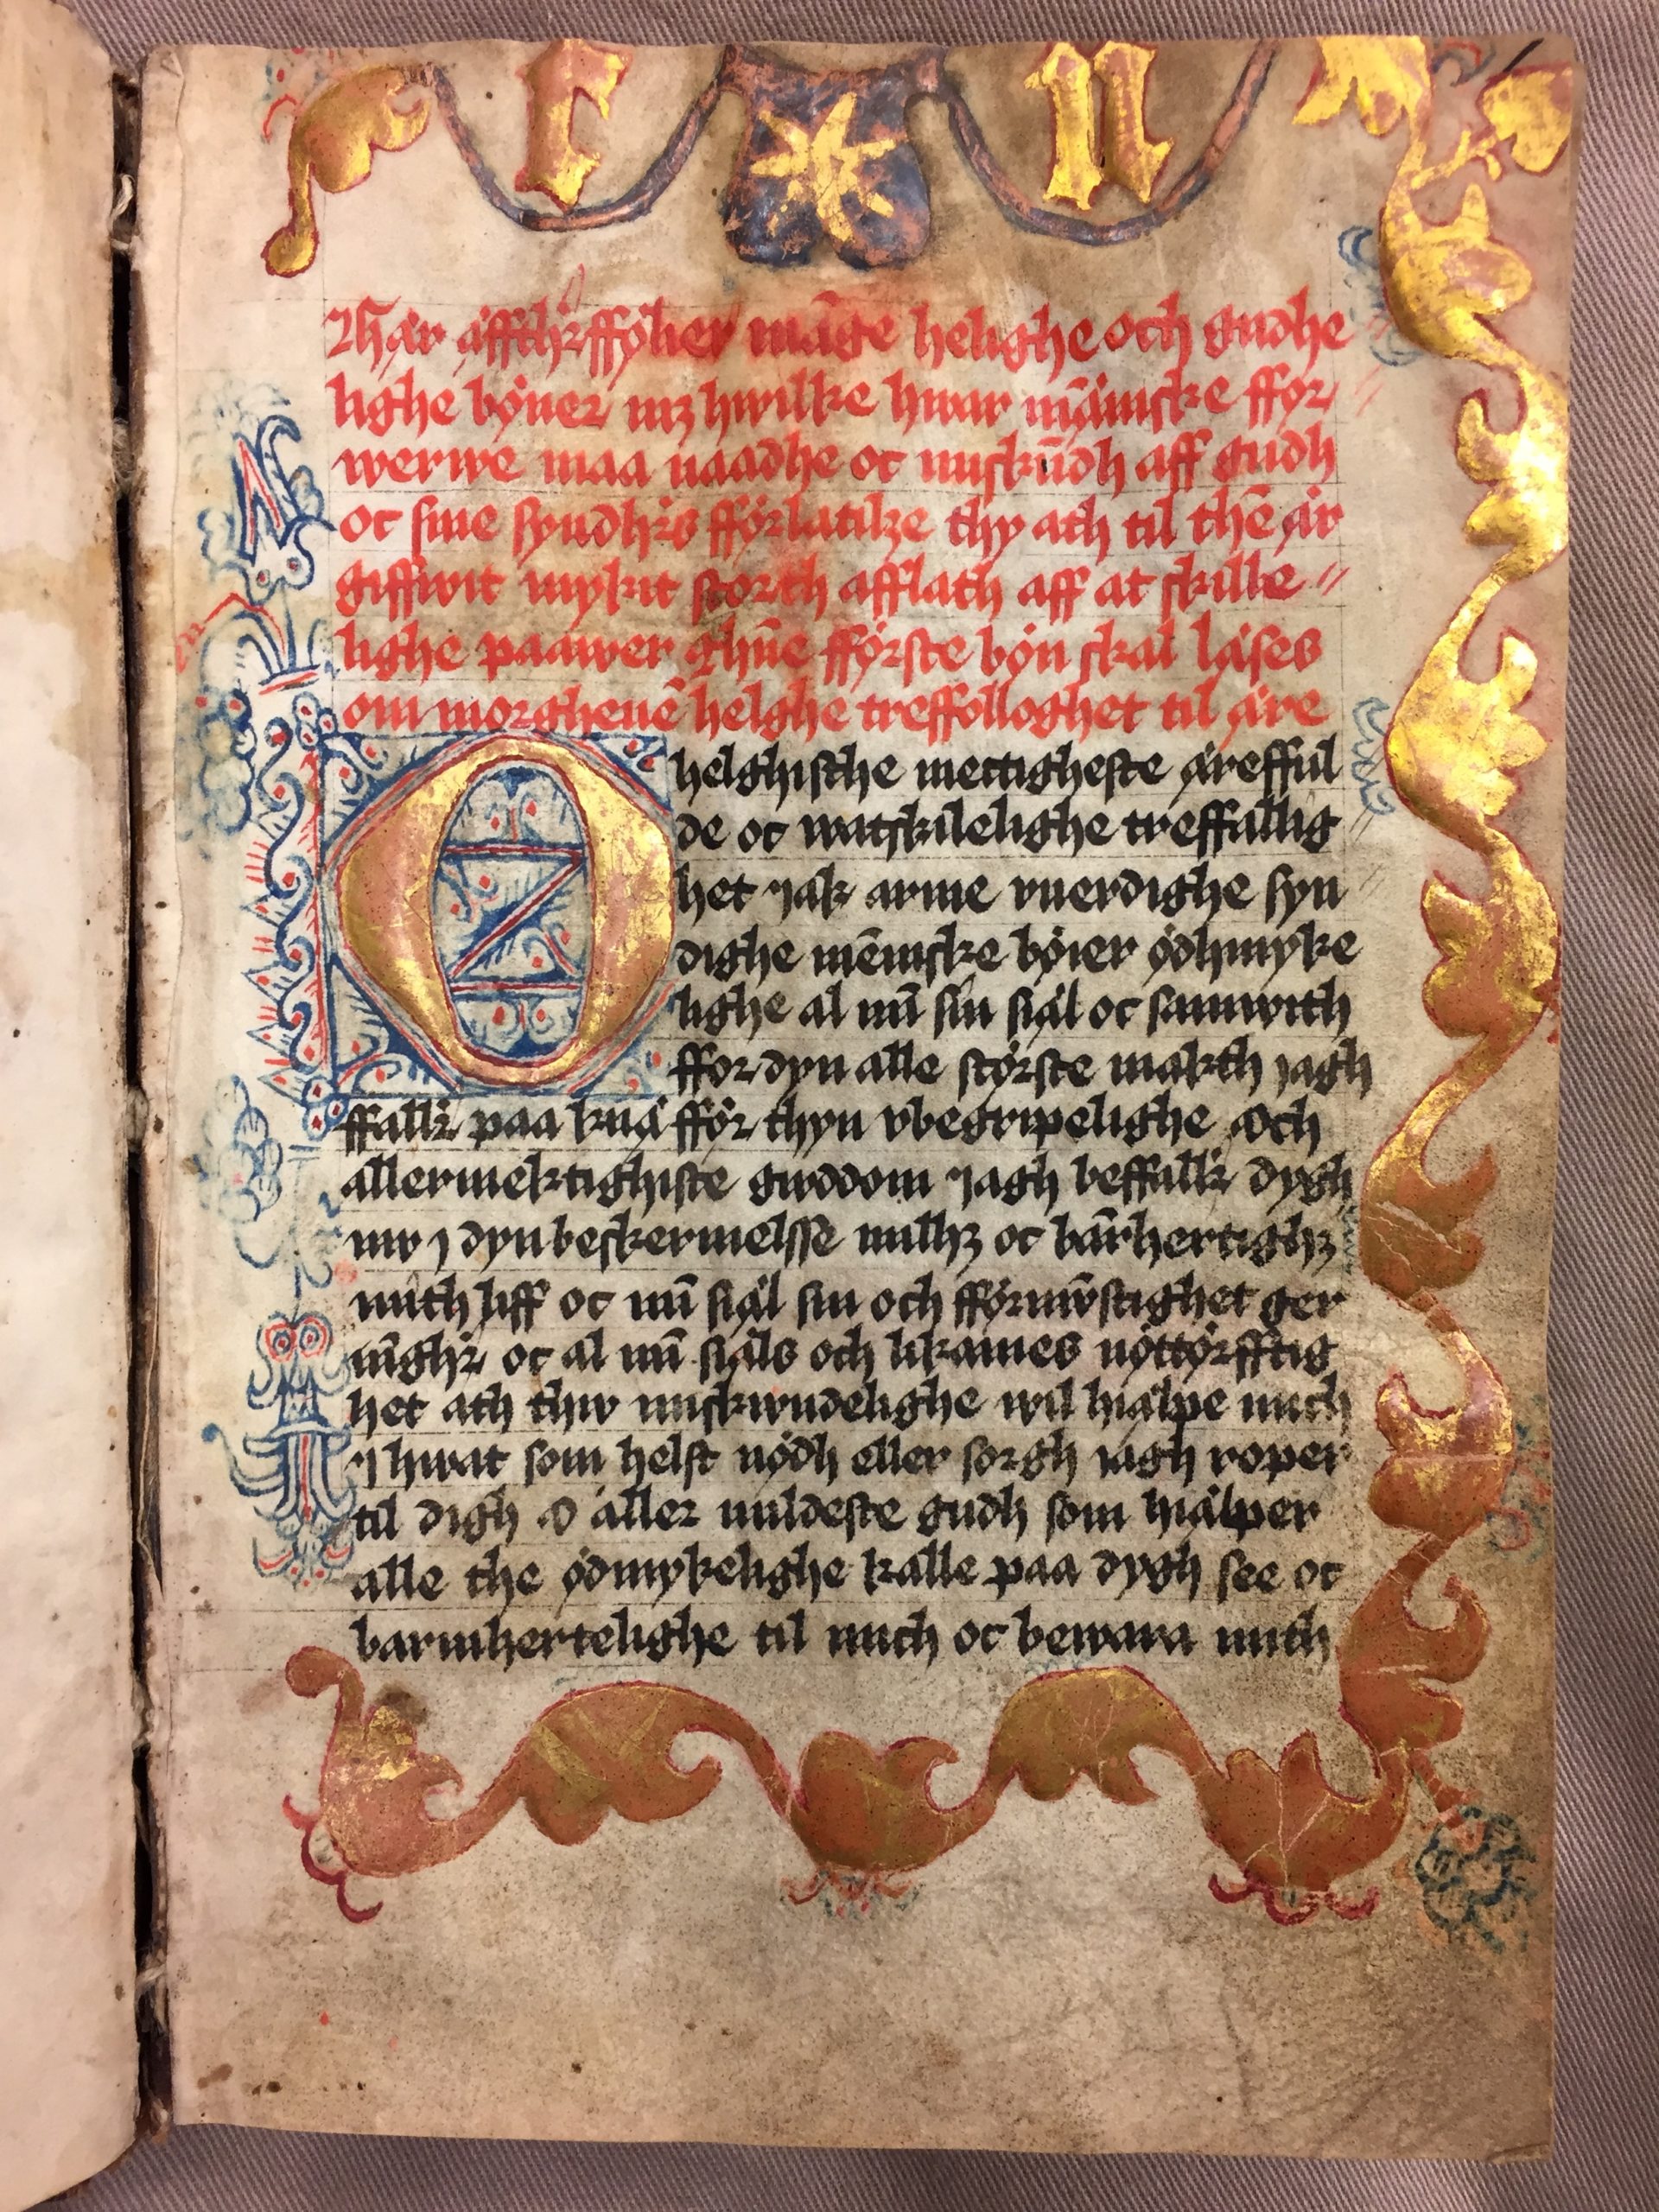 r n
Thær æffthr ffølier mā̄ge helighe och gudhe
lighe bøner mz hwilke hwar mā̄niske ffor
werwe maa naadhe oc miskūdh aff gudh
oc sine syndhrs fførlatilze thy ath til thē ær
giffwit mykit storth afflath aff at skille
lighe paawer thīne fførste bøn skal læses
om morghenē helghe treffolloghet til ære
O helghisthe mectigheste ærefful
de oc watskilelighe treffallig
het jak arme vuerdighe syn
dighe mēniske bøier ødhmyke
lighe al mī sin siæl oc samwith
ffor dyn alle største makth jagh
ffallr paa knæ ffør thyn vbegripelighe och
allermektighiste gwddom jagh beffallr dygh
nw j dyn beskermelsse milhz oc bārhertighz
mith liff oc mī siæl sin och fførnw̄stighet ger
nīghr oc al mī siæls och likames nøttørfftig
het ath thw miskwndelighe wil hiælpe mich
j hwat som helst nødh eller sorgh iagh roper
til digh o aller mildeste gudh som hiælper
alle the ødmykelighe kalle paa dygh see oc
barmhertelighe til mich oc bewara mith